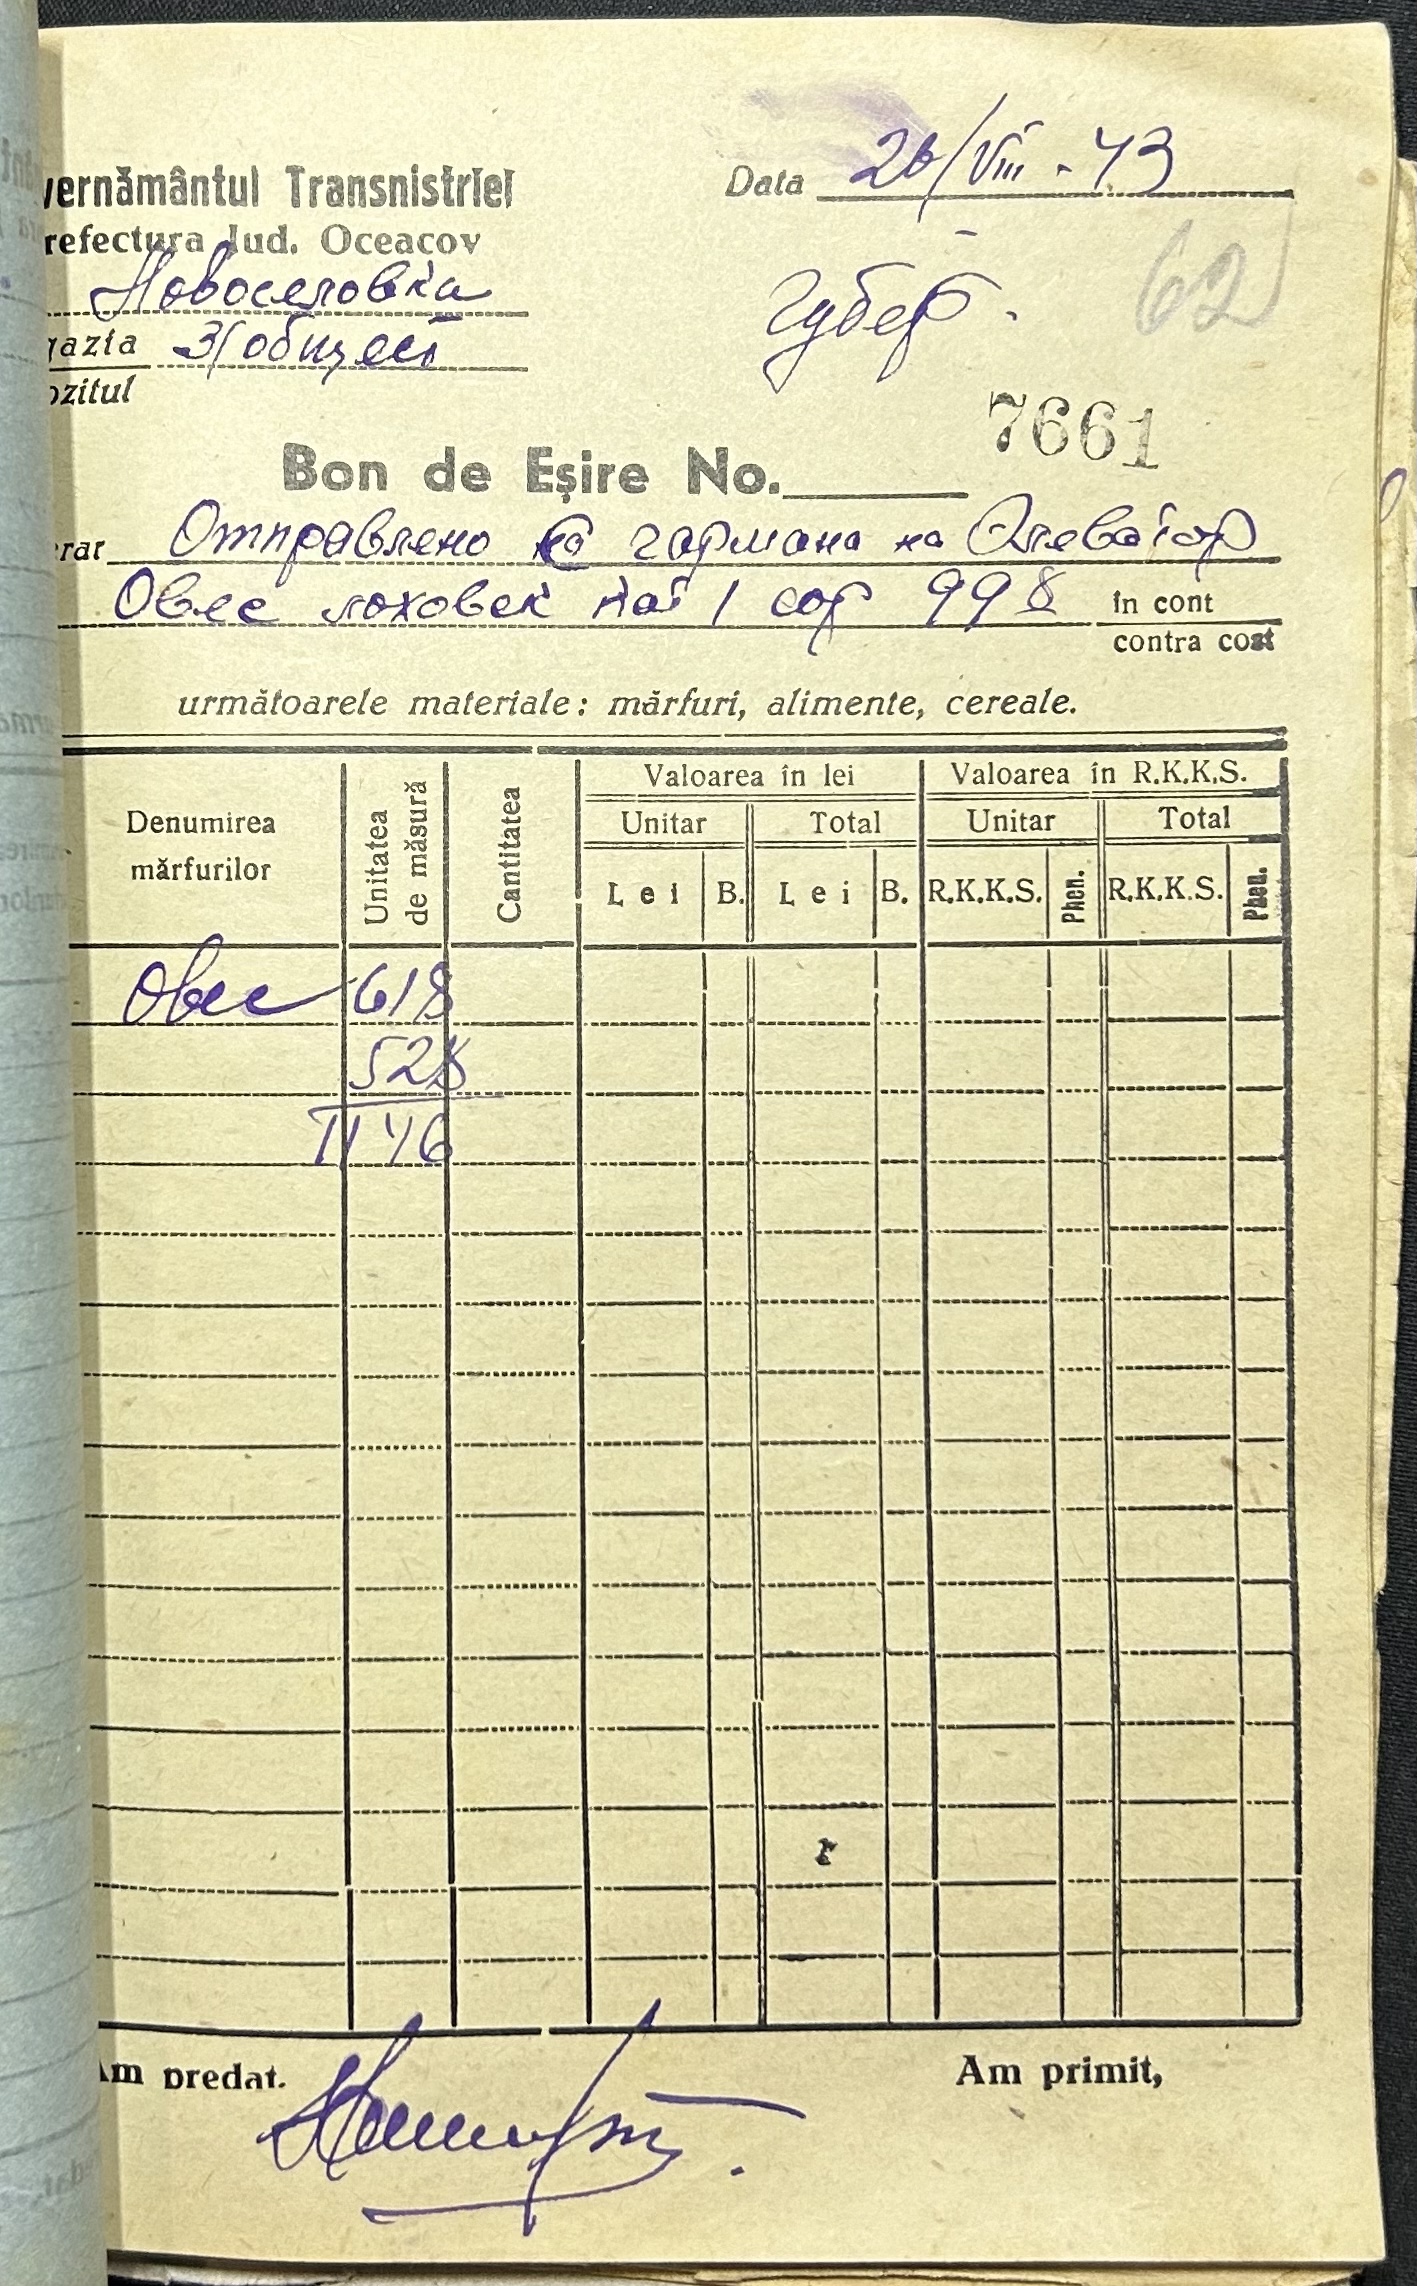 vernământul Transnistriei
Data 26/VIII - 43
refectura Jud. Oceacov
Новоселовка
62
Губер.
gazia 3/общест
ozitul
7661
Bon de Eşire No.
rar Отправлено со гармана на Элеватор
Овес 1 сор 998 în cont
contra cost
următoarele materiale: mărfuri, alimente, cereale.
Denumirea mărfurilor Unitatea de măsură Cantitatea Valoarea în lei Valoarea în R.K.K.S.
Unitar Total Unitar Total
Lei B. Lei B. R.K.K.S. Phen. R.K.K.S. Phen.
Овес 618
528
1146
Am predat. Am primit,